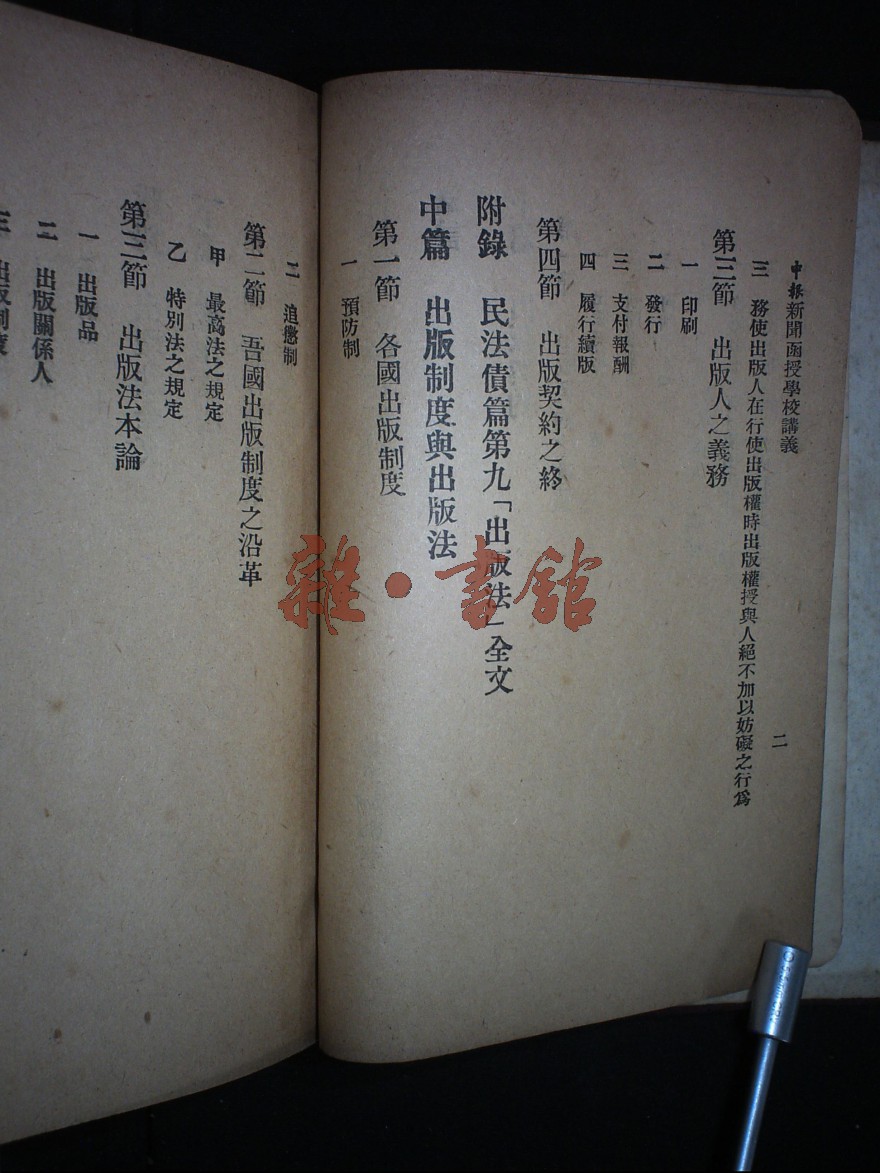 申報新聞函授學校講義
二
三 務使出版人在行使出版權時出版權授與人絕不加以妨礙之行爲
第三節 出版人之義務
一 印刷
二 發行
三 支付報酬
四 履行續版
第四節 出版契約之終
附錄 民法債篇第九「出版法」全文
中篇 出版制度與出版法
第一節 各國出版制度
一 預防制
二 追懲制
第二節 吾國出版制度之沿革
甲 最高法之規定
乙 特別法之規定
第三節 出版法本論
一 出版品
二 出版關係人
三 出版制度
雜·書館